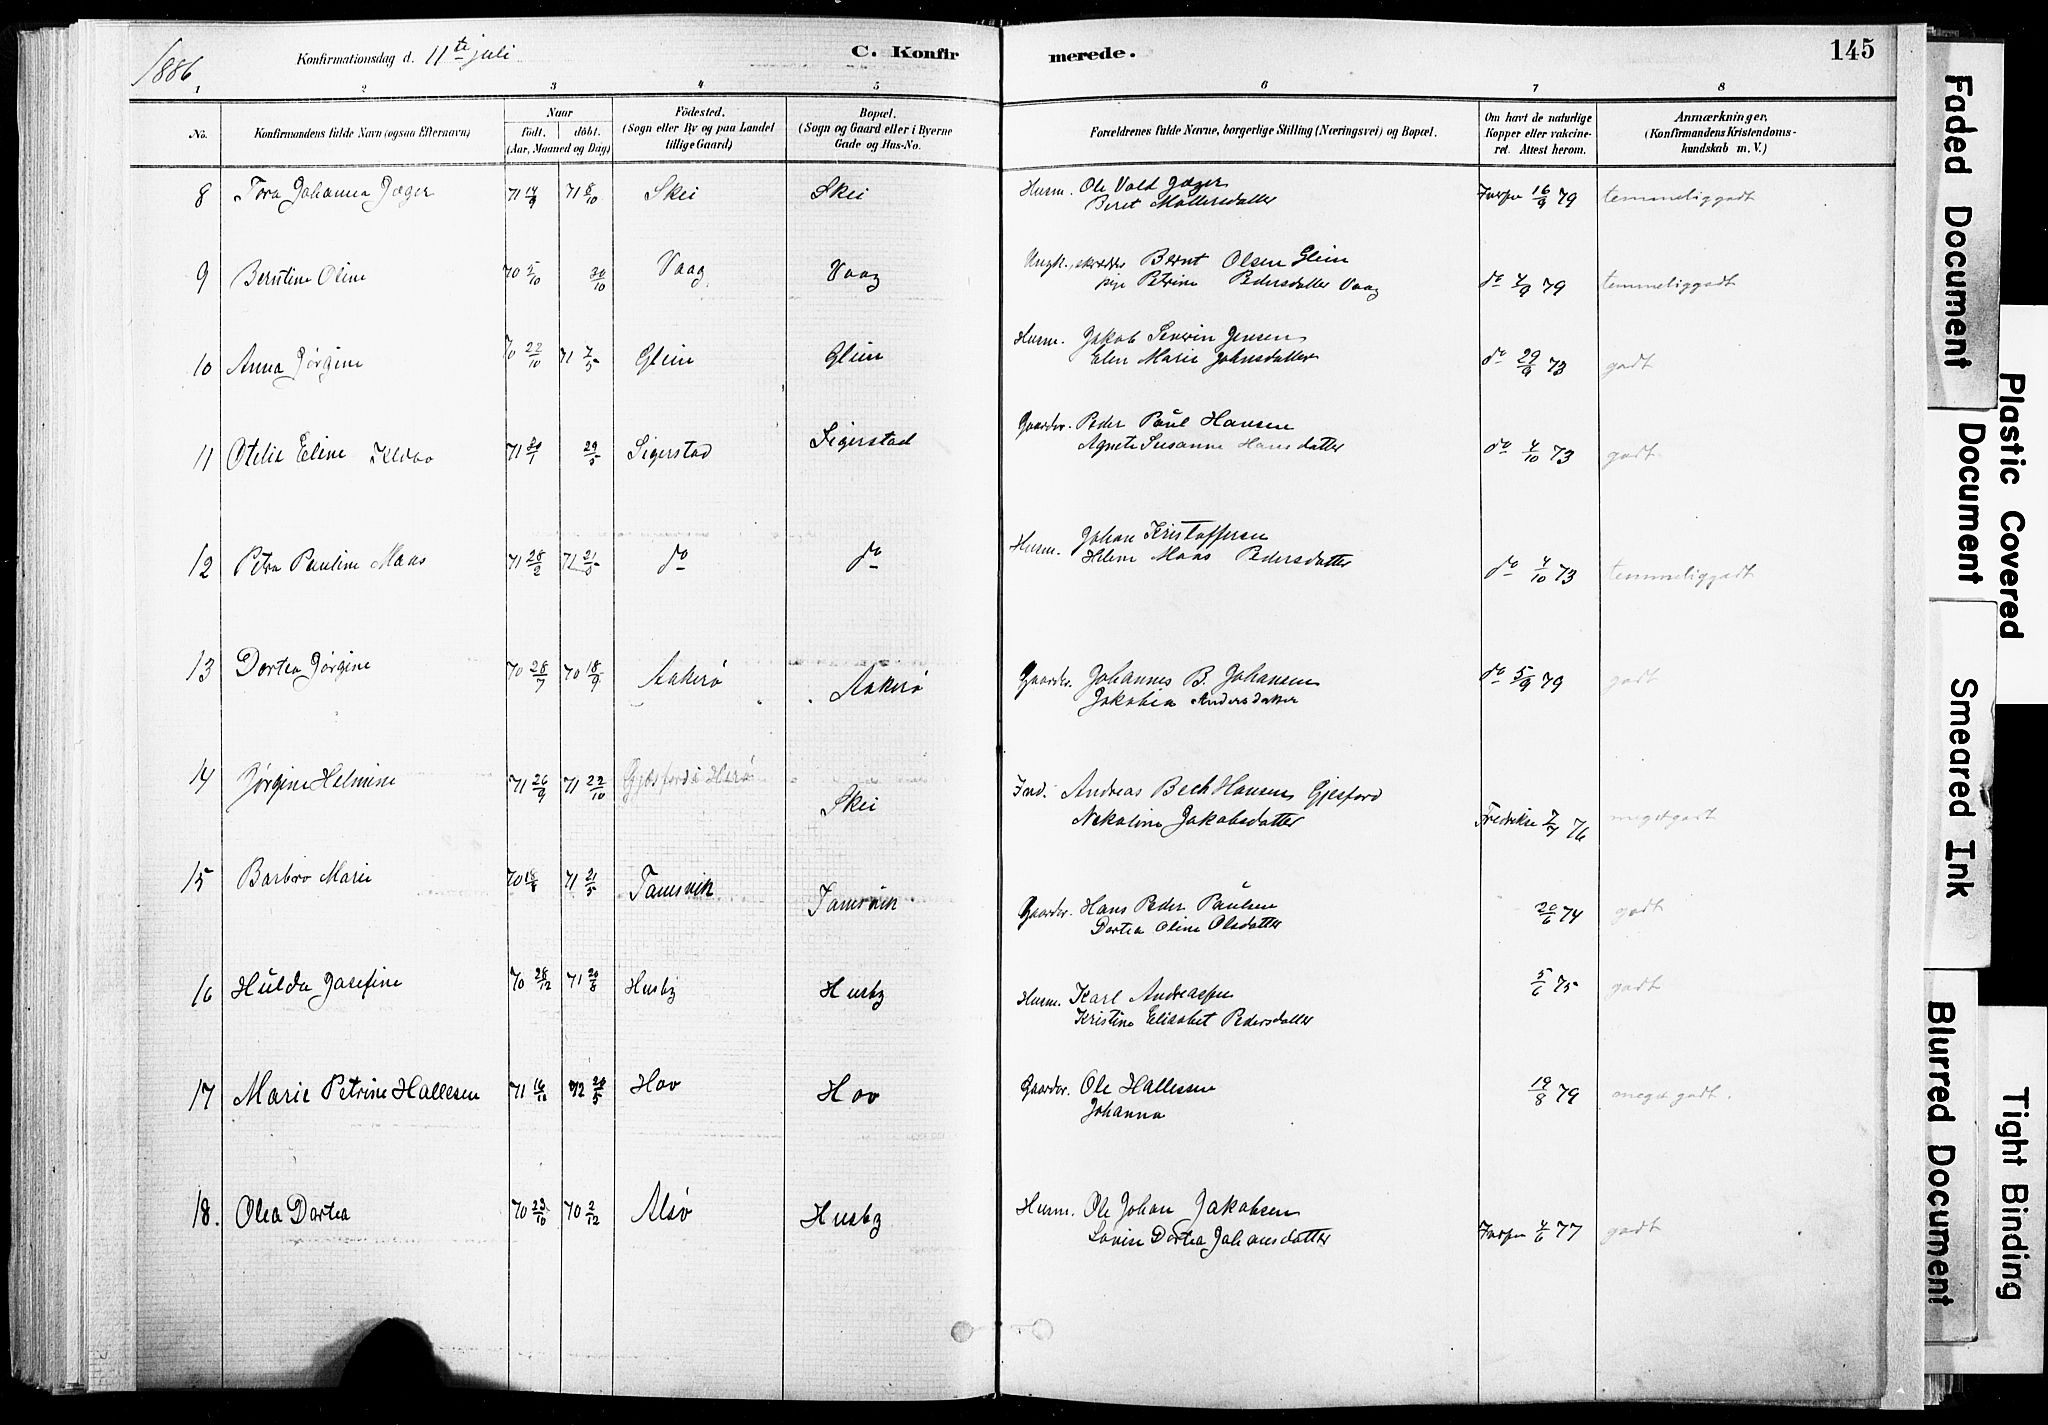 1886 Konfirmationsdag d. 11te juli C. Konfirmerede. 145
1 2 3 4 5 6 7 8
No. Konfirmandens fulde Navn (ogsaa Efternavn) Naar födt. döbt. (Aar, Maaned og Dag) Födested. (Sogn eller By og paa Landet tillige Gaard) Bopæl. (Sogn og Gaard eller i Byerne Gade og Hus-No. Forældrenes fulde Navne, borgerlige Stilling (Næringsvei) og Bopæl. Om havt de naturlige Kopper eller vakcineret. Attest herom. Anmærkninger, (Konfirmandens Kristendomskundskab m. V.)
8 Tora Johanna Jæger 71 14/9 71 8/10 Skei Skei Husm. Ole Vold Jæger
Beret Möllersdatter 16/9 79 temmeliggodt
9 Berntine Oline 70 5/10 30/10 Vaag Vaag Ungk. Bernt Olsen Glein
pige Petrine Pedersdatter Vaag do 4/9 79 temmeliggodt
10 Anna Jørgine 70 22/10 71 7/5 Glein Glein Husm. Jakob Severin Jensen
Elen Marie Johnsdatter do 29/9 73 godt
11 Otelie Eline 71 29/5 Sigerstad Sigerstad Gaardbr. Peder Paul Hansen
Agnete Susanne Hansdatter do 4/10 73 godt
12 Petra Pauline Maas 71 28/2 71 21/5 do do Husm. Johan Kristoffersen
Helene Maas Pedersdatter do 4/10 73 temmeliggodt
13 Dortea Jørgine 70 28/7 70 18/9 Aakerø Aakerø Gaardbr. Johannes B. Johansen
Jakobia Andersdatter do 5/9 79 godt
14 Jørgine Helmine 71 26/9 71 22/10 Gjæsford i Herø Skei Ind. Andreas Bech Hansen Gjesford
Nekoline Jakobsdatter Fredrikse 7/7 76 megetgodt
15 Barbro Marie 70 18/8 71 21/5 Tamsvik Tamsvik Gaardbr. Hans Peder Paulsen
Dortea Oline Olsdatter 20/6 74 godt
16 Hulda Josefine 70 28/12 71 20/8 Husby Husby Husm. Karl Andreassen
Kristine Elisabet Pedersdatter 5/6 75 godt
17 Marie Petrine Hallesen 71 16/10 72 20/5 Hov Hov Gaardbr. Ole Hallesen
Johanna 19/8 79 meget godt.
18. Olea Dortea 70 23/10 70 2/12 Alsø Husby Husm. Ole Johan Jakobsen
Lovise Dortea Johansdatter 4/6 77 godt
Faded Document
Plastic Covered Document
Smeared Ink
Blurred Document
Tight Binding